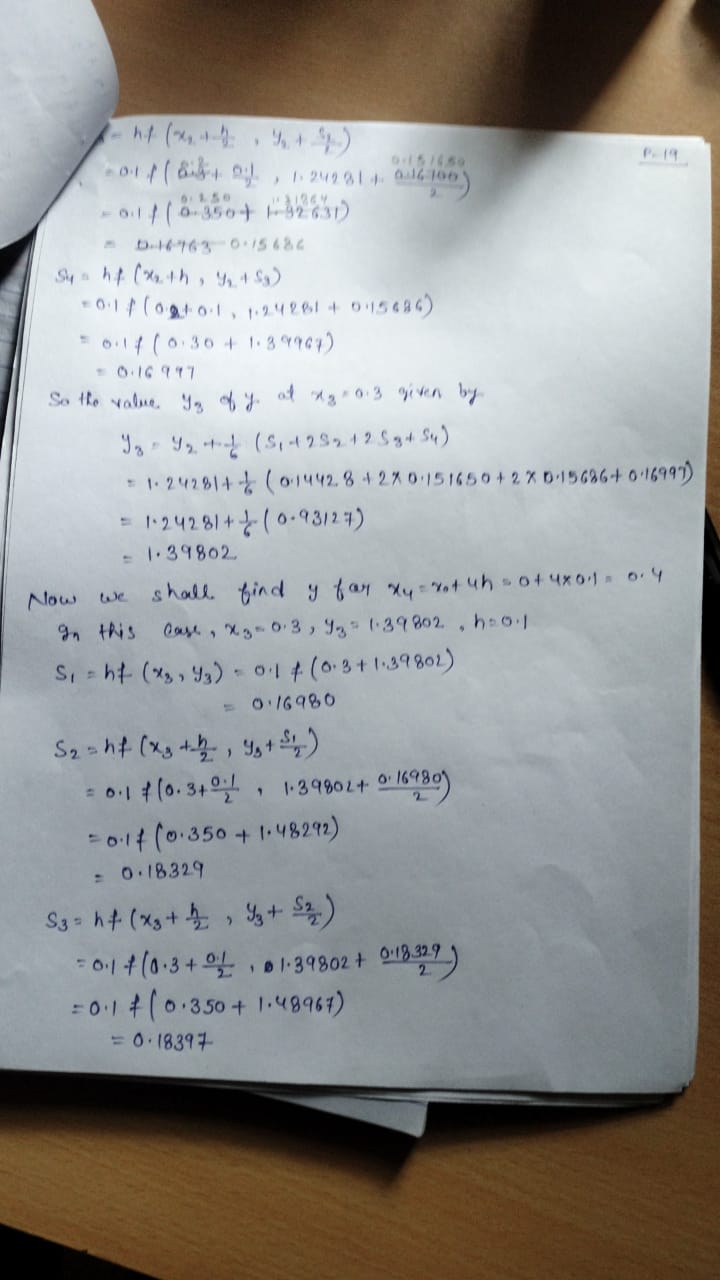 P-19
= hf (x₂ + h/2 , y₂ + S₂/2)
0.2 0.151650
= 0.1 f (0.3 + 0.1/2 , 1.24281 + 0.16100/2)
0.250 1.31864
= 0.1 f (0.350 + 1.32631)
= 0.16763 0.15686
S₄ = hf (x₂ + h , y₂ + S₃)
= 0.1 f (0.2 + 0.1 , 1.24281 + 0.15686)
= 0.1 f (0.30 + 1.39967)
= 0.16997
So the value y₃ of y at x₃ = 0.3 given by
y₃ = y₂ + 1/6 (S₁ + 2S₂ + 2S₃ + S₄)
= 1.24281 + 1/6 (0.14428 + 2 × 0.151650 + 2 × 0.15686 + 0.16997)
= 1.24281 + 1/6 (0.93127)
= 1.39802
Now we shall find y for x₄ = x₀ + 4h = 0 + 4×0.1 = 0.4
In this case, x₃ = 0.3, y₃ = 1.39802, h = 0.1
S₁ = hf (x₃, y₃) = 0.1 f (0.3 + 1.39802)
= 0.16980
S₂ = hf (x₃ + h/2 , y₃ + S₁/2)
= 0.1 f (0.3 + 0.1/2 , 1.39802 + 0.16980/2)
= 0.1 f (0.350 + 1.48292)
= 0.18329
S₃ = hf (x₃ + h/2 , y₃ + S₂/2)
= 0.1 f (0.3 + 0.1/2 , 1.39802 + 0.18329/2)
= 0.1 f (0.350 + 1.48967)
= 0.18397